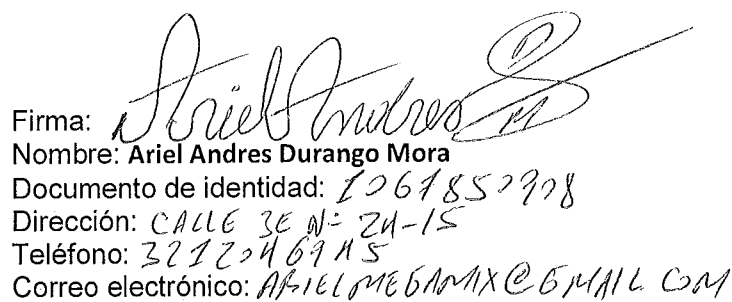 Firma: Ariel Andres
Nombre: Ariel Andres Durango Mora
Documento de identidad:
Dirección: CALLE 3E Nº 24-15
Teléfono:
Correo electrónico: ARIELMEGAMIX@GMAIL COM